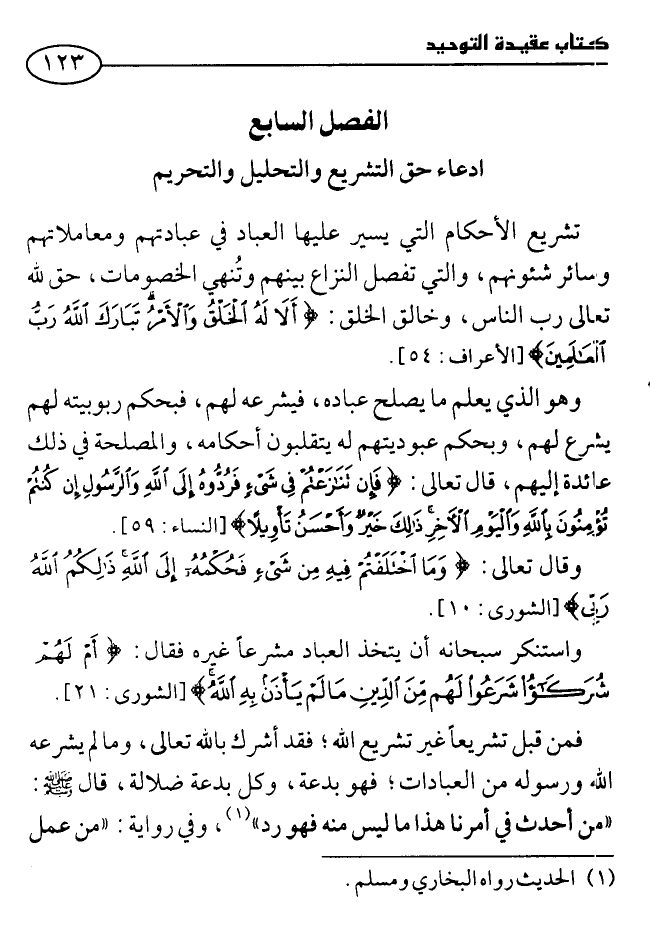 كتاب عقيدة التوحيد
١٢٣
الفصل السابع
ادعاء حق التشريع والتحليل والتحريم
تشريع الأحكام التي يسير عليها العباد في عبادتهم ومعاملاتهم
وسائر شئونهم، والتي تفصل النزاع بينهم وتُنهي الخصومات، حق لله
تعالى رب الناس، وخالق الخلق: ﴿أَلَا لَهُ الْخَلْقُ وَالْأَمْرُ ۗ تَبَارَكَ اللَّهُ رَبُّ
الْعَالَمِينَ﴾ [الأعراف: ٥٤].
وهو الذي يعلم ما يصلح عباده، فيشرعه لهم، فبحكم ربوبيته لهم
يشرع لهم، وبحكم عبوديتهم له يتقلبون أحكامه، والمصلحة في ذلك
عائدة إليهم، قال تعالى: ﴿فَإِن تَنَازَعْتُمْ فِي شَيْءٍ فَرُدُّوهُ إِلَى اللَّهِ وَالرَّسُولِ إِن كُنتُمْ
تُؤْمِنُونَ بِاللَّهِ وَالْيَوْمِ الْآخِرِ ۚ ذَٰلِكَ خَيْرٌ وَأَحْسَنُ تَأْوِيلًا﴾ [النساء: ٥٩].
وقال تعالى: ﴿وَمَا اخْتَلَفْتُمْ فِيهِ مِن شَيْءٍ فَحُكْمُهُ إِلَى اللَّهِ ۚ ذَٰلِكُمُ اللَّهُ
رَبِّي﴾ [الشورى: ١٠].
واستنكر سبحانه أن يتخذ العباد مشرعاً غيره فقال: ﴿أَمْ لَهُمْ
شُرَكَاءُ شَرَعُوا لَهُم مِّنَ الدِّينِ مَا لَمْ يَأْذَن بِهِ اللَّهُ ۚ﴾ [الشورى: ٢١].
فمن قبل تشريعاً غير تشريع الله؛ فقد أشرك بالله تعالى، وما لم يشرعه
الله ورسوله من العبادات؛ فهو بدعة، وكل بدعة ضلالة، قال ﷺ:
«من أحدث في أمرنا هذا ما ليس منه فهو رد»(١)، وفي رواية: «من عمل
(١) الحديث رواه البخاري ومسلم.